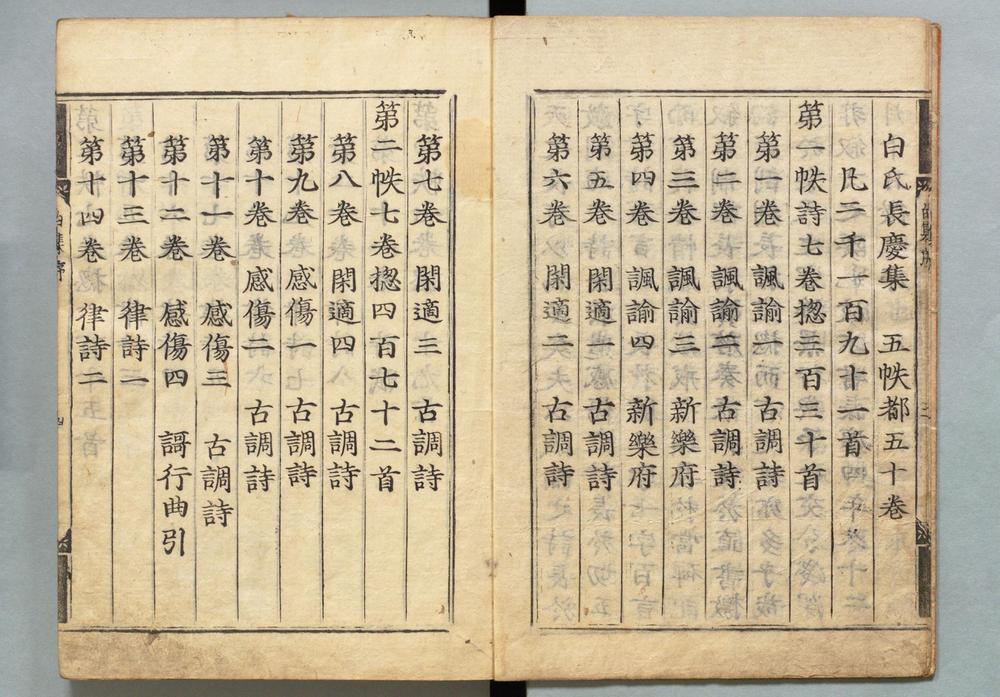 白氏長慶集 五帙都五十卷
凡二千一百九十一首
第一帙詩七卷揔三百三十首
第一卷 諷諭一 古調詩
第二卷 諷諭二 古調詩
第三卷 諷諭三 新樂府
第四卷 諷諭四 新樂府
第五卷 閑適一 古調詩
第六卷 閑適二 古調詩
第七卷 閑適三 古調詩
第二帙七卷揔四百七十二首
第八卷 閑適四 古調詩
第九卷 感傷一 古調詩
第十卷 感傷二 古調詩
第十一卷 感傷三 古調詩
第十二卷 感傷四 謌行曲引
第十三卷 律詩一
第十四卷 律詩二
白集序 四